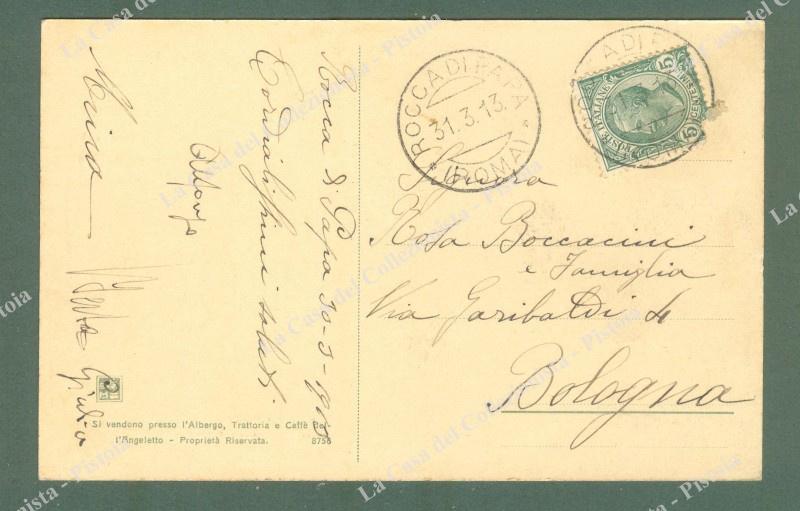 Rocca di Papa 30-3-1913
Cordialissimi saluti
Alfonso
Maria
Giulio
Si vendono presso l'Albergo, Trattoria e Caffè Bel-
l'Angeletto - Proprietà Riservata. 8756
ROCCA DI PAPA
31.3.13.
(ROMA)
POSTE ITALIANE
5
5
Signora
Rosa Boccacini
e Famiglia
Via Garibaldi 4
Bologna
La Casa del Collezionista - Pistoia